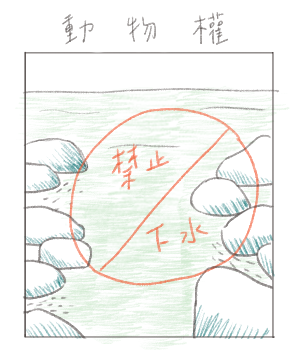 動物權
禁止
下水